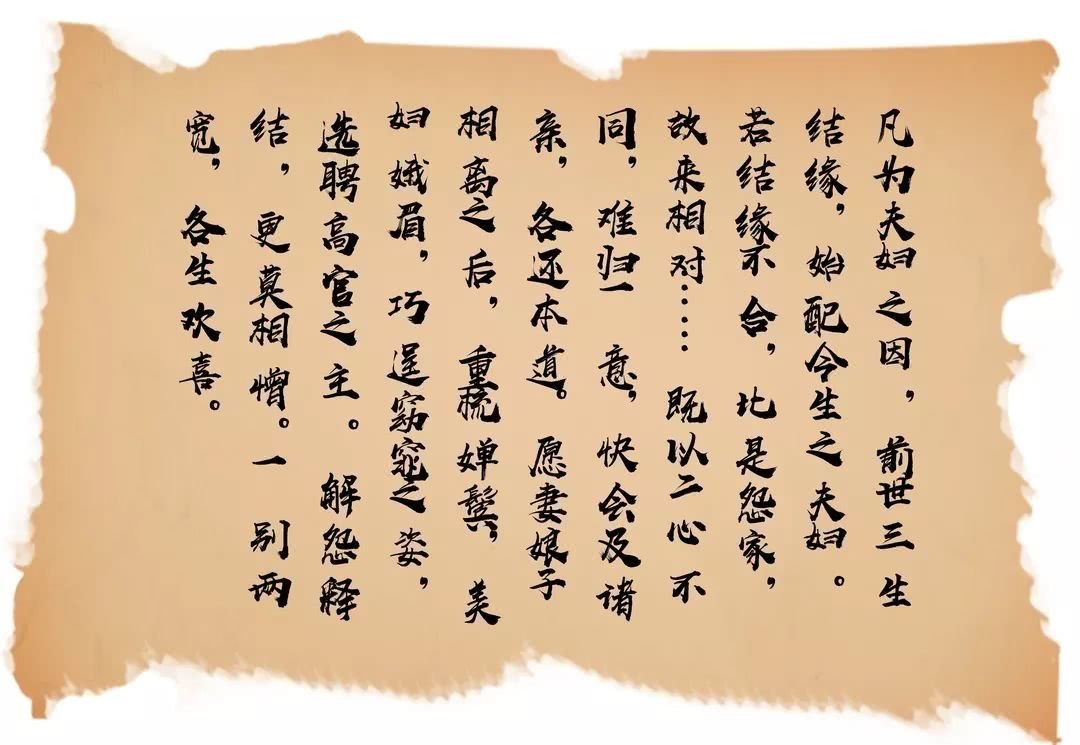 凡为夫妇之因，前世三生
结缘，始配今生之夫妇。
若结缘不合，比是怨家，
故来相对……既以二心不
同，难归一意，快会及诸
亲，各还本道。愿妻娘子
相离之后，重梳婵鬓，美
妇娥眉，巧逞窈窕之姿，
选聘高官之主。解怨释
结，更莫相憎。一别两
宽，各生欢喜。